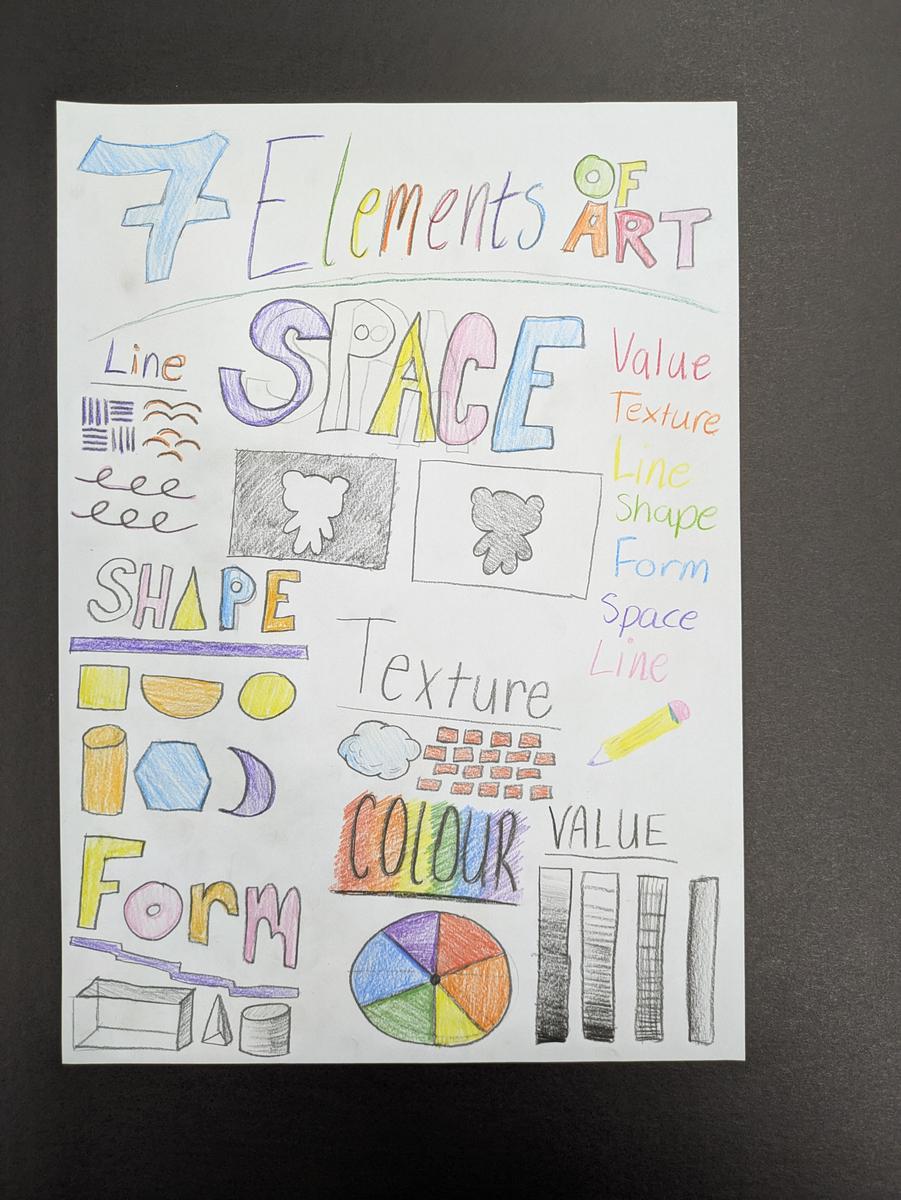 7 Elements OF ART
SPACE
Line
Value
Texture
Line
Shape
Form
Space
Line
SHAPE
Texture
COLOUR
VALUE
Form